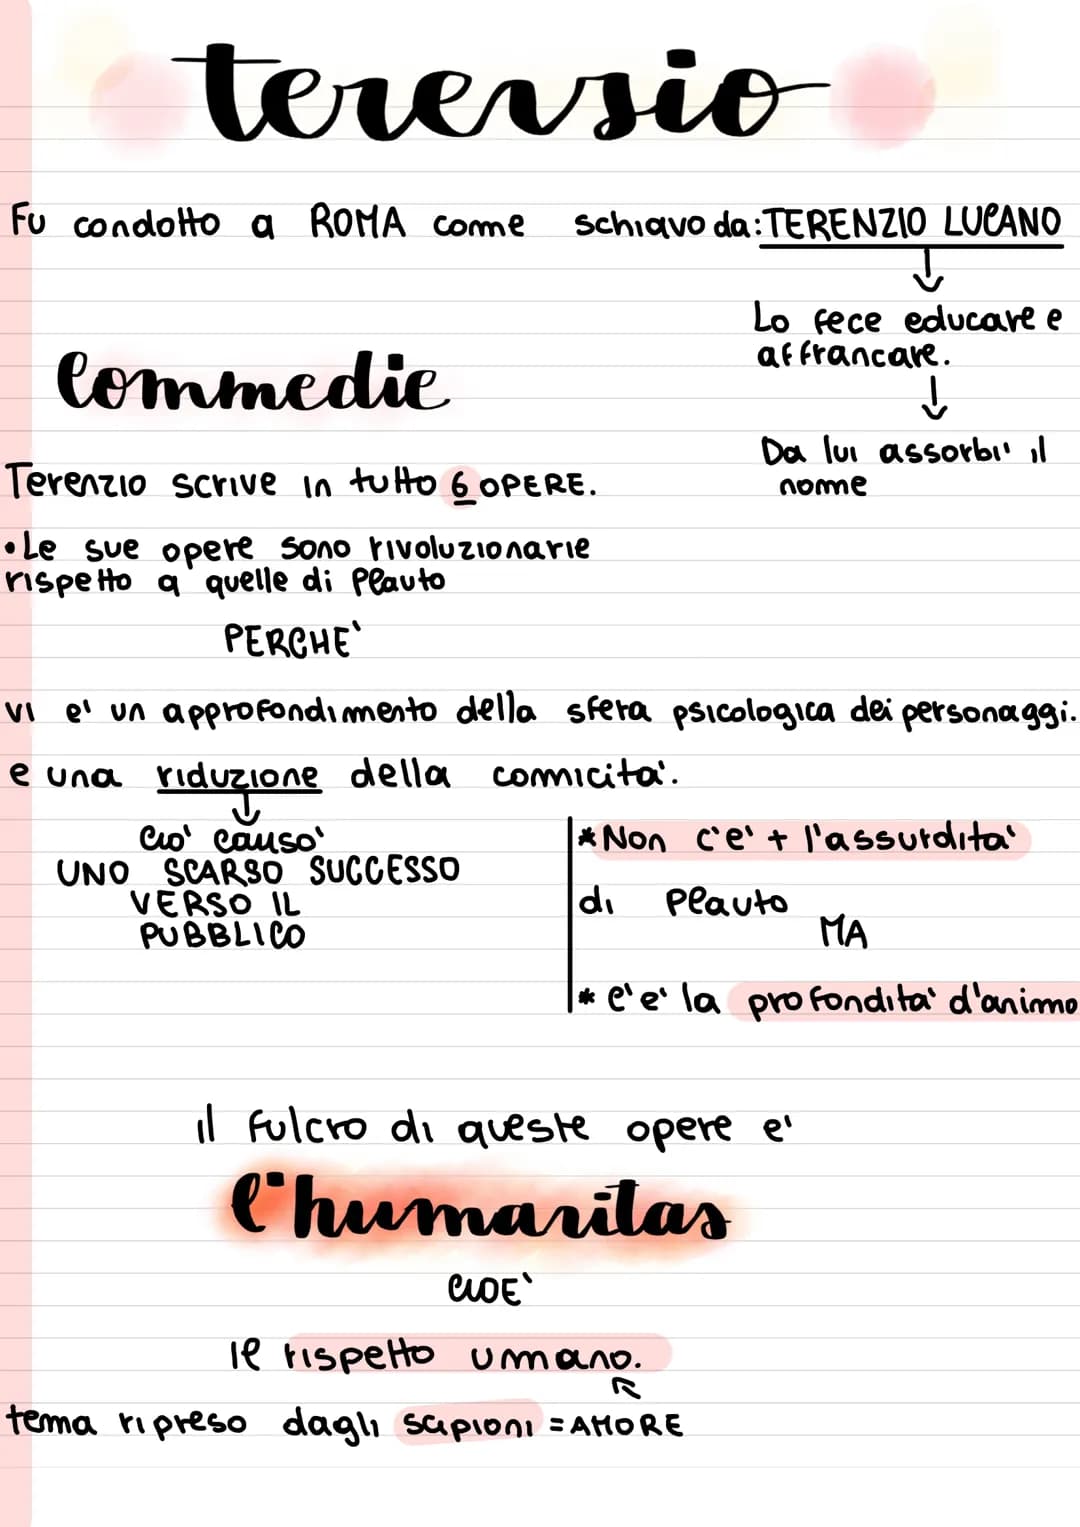 terenzio
Fu condotto a ROMA come schiavo da: TERENZIO LUCANO
Lo fece educare e
affrancare.
Da lui assorbi' il
nome
Commedie
Terenzio scrive in tutto 6 OPERE.
•Le sue opere sono rivoluzionarie
rispetto a quelle di Plauto
PERCHE'
vi e' un approfondimento della sfera psicologica dei personaggi.
e una riduzione della comicita'.
Cio' causo'
UNO SCARSO SUCCESSO
VERSO IL
PUBBLICO
*Non c'e' + l'assurdita'
di Plauto
MA
* C'e' la profondita' d'animo
il fulcro di queste opere e'
l'humanitas
CIOE'
il rispetto umano.
tema ripreso dagli scipioni = AMORE